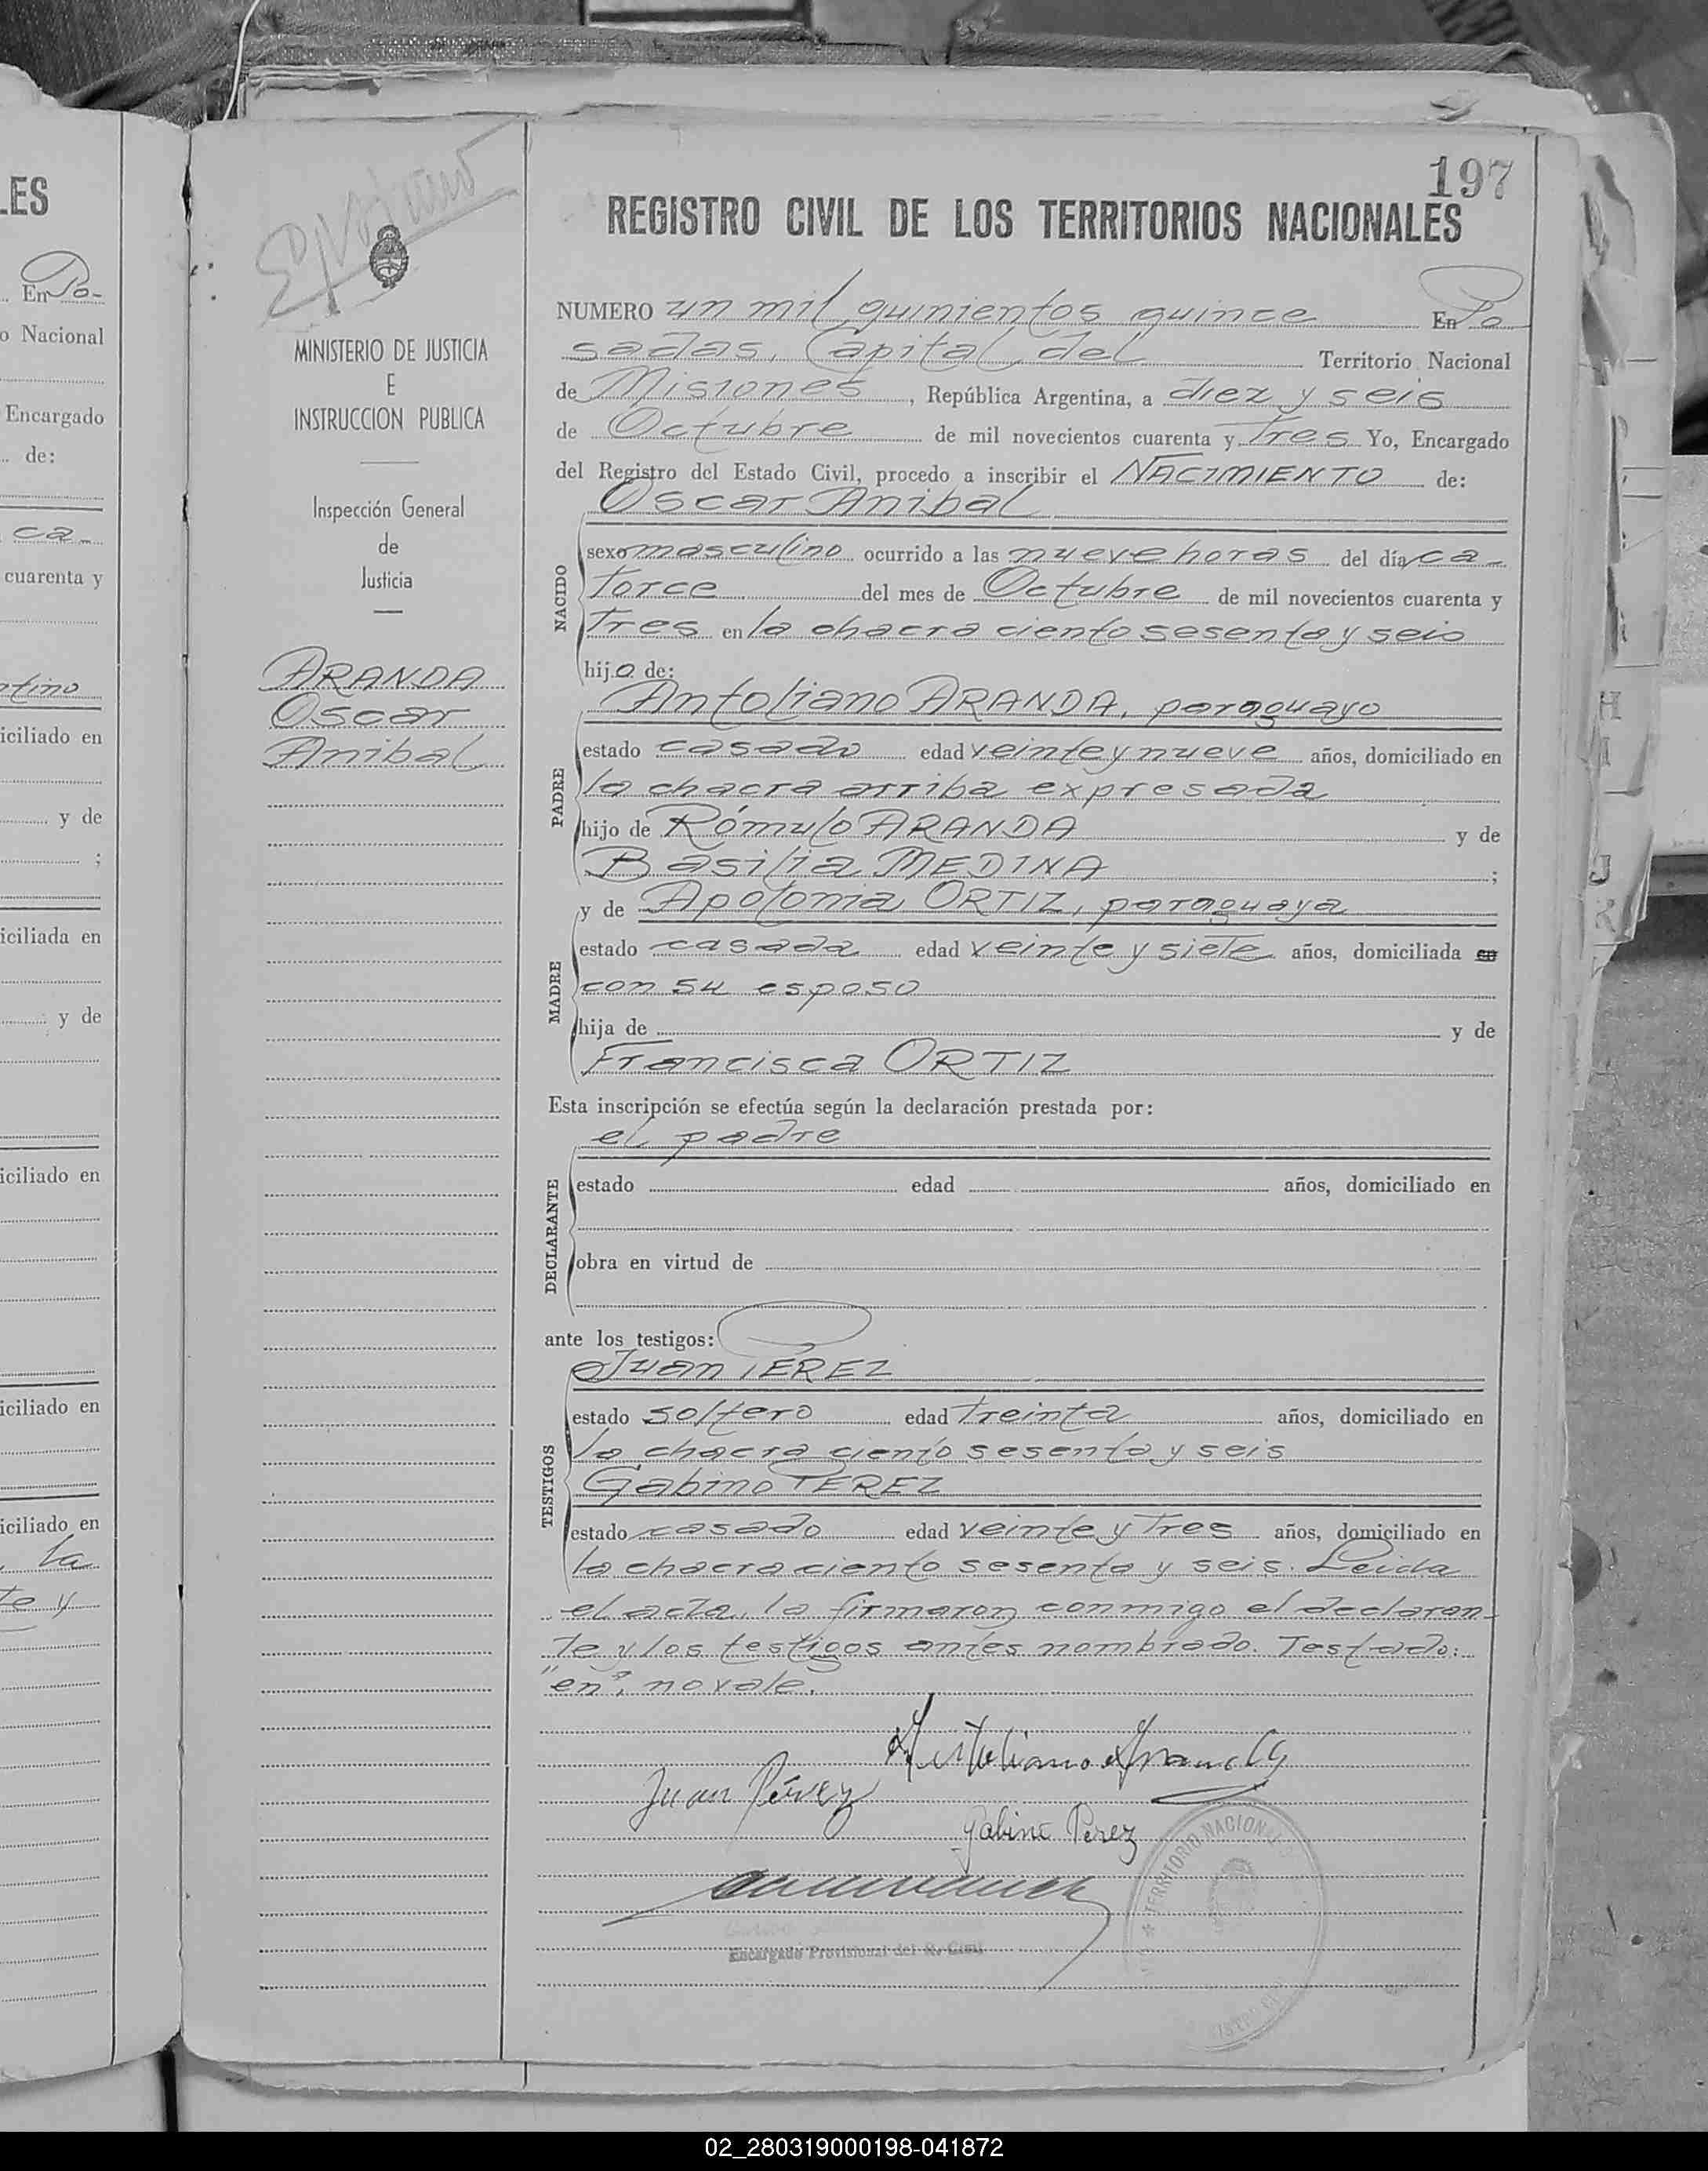 LES
En Po-
o Nacional
Encargado
de:
ca-
cuarenta y
ntino
iciliado en
y de
;
iciliada en
y de
iciliado en
iciliado en
iciliado en
la
te y
197
REGISTRO CIVIL DE LOS TERRITORIOS NACIONALES
MINISTERIO DE JUSTICIA
E
INSTRUCCION PUBLICA
Inspección General
de
Justicia
ARANDA
Oscar
Anibal
NUMERO un mil quinientos quince En Po
sadas, Capital del Territorio Nacional
de Misiones, República Argentina, a diez y seis
de Octubre de mil novecientos cuarenta y Tres Yo, Encargado
del Registro del Estado Civil, procedo a inscribir el NACIMIENTO de:
Oscar Anibal
NACIDO
sexo masculino ocurrido a las nueve horas del día ca-
torce del mes de Octubre de mil novecientos cuarenta y
Tres en la chacra ciento sesenta y seis
hijo de:
Antoliano ARANDA, paraguayo
PADRE
estado casado edad veinte y nueve años, domiciliado en
la chacra arriba expresada
hijo de Rómulo ARANDA y de
Basilia MEDINA ;
y de Apolonia ORTIZ, paraguaya
MADRE
estado casada edad veinte y siete años, domiciliada en
con su esposo
hija de y de
Francisca ORTIZ
Esta inscripción se efectúa según la declaración prestada por:
el padre
DECLARANTE
estado edad años, domiciliado en
obra en virtud de
ante los testigos:
Juan PÉREZ
TESTIGOS
estado soltero edad Treinta años, domiciliado en
la chacra ciento sesenta y seis
Gabino PEREZ
estado casado edad veinte y Tres años, domiciliado en
la chacra ciento sesenta y seis. Leida
el acta, la firmaron conmigo el declaran-
te y los testigos antes nombrado. Testado:
"en", no vale.
Antoliano Aranda
Juan Pérez
Gabino Perez
TERRITORIO NACIONAL
Encargado Provisional del R. Civil
02_280319000198-041872